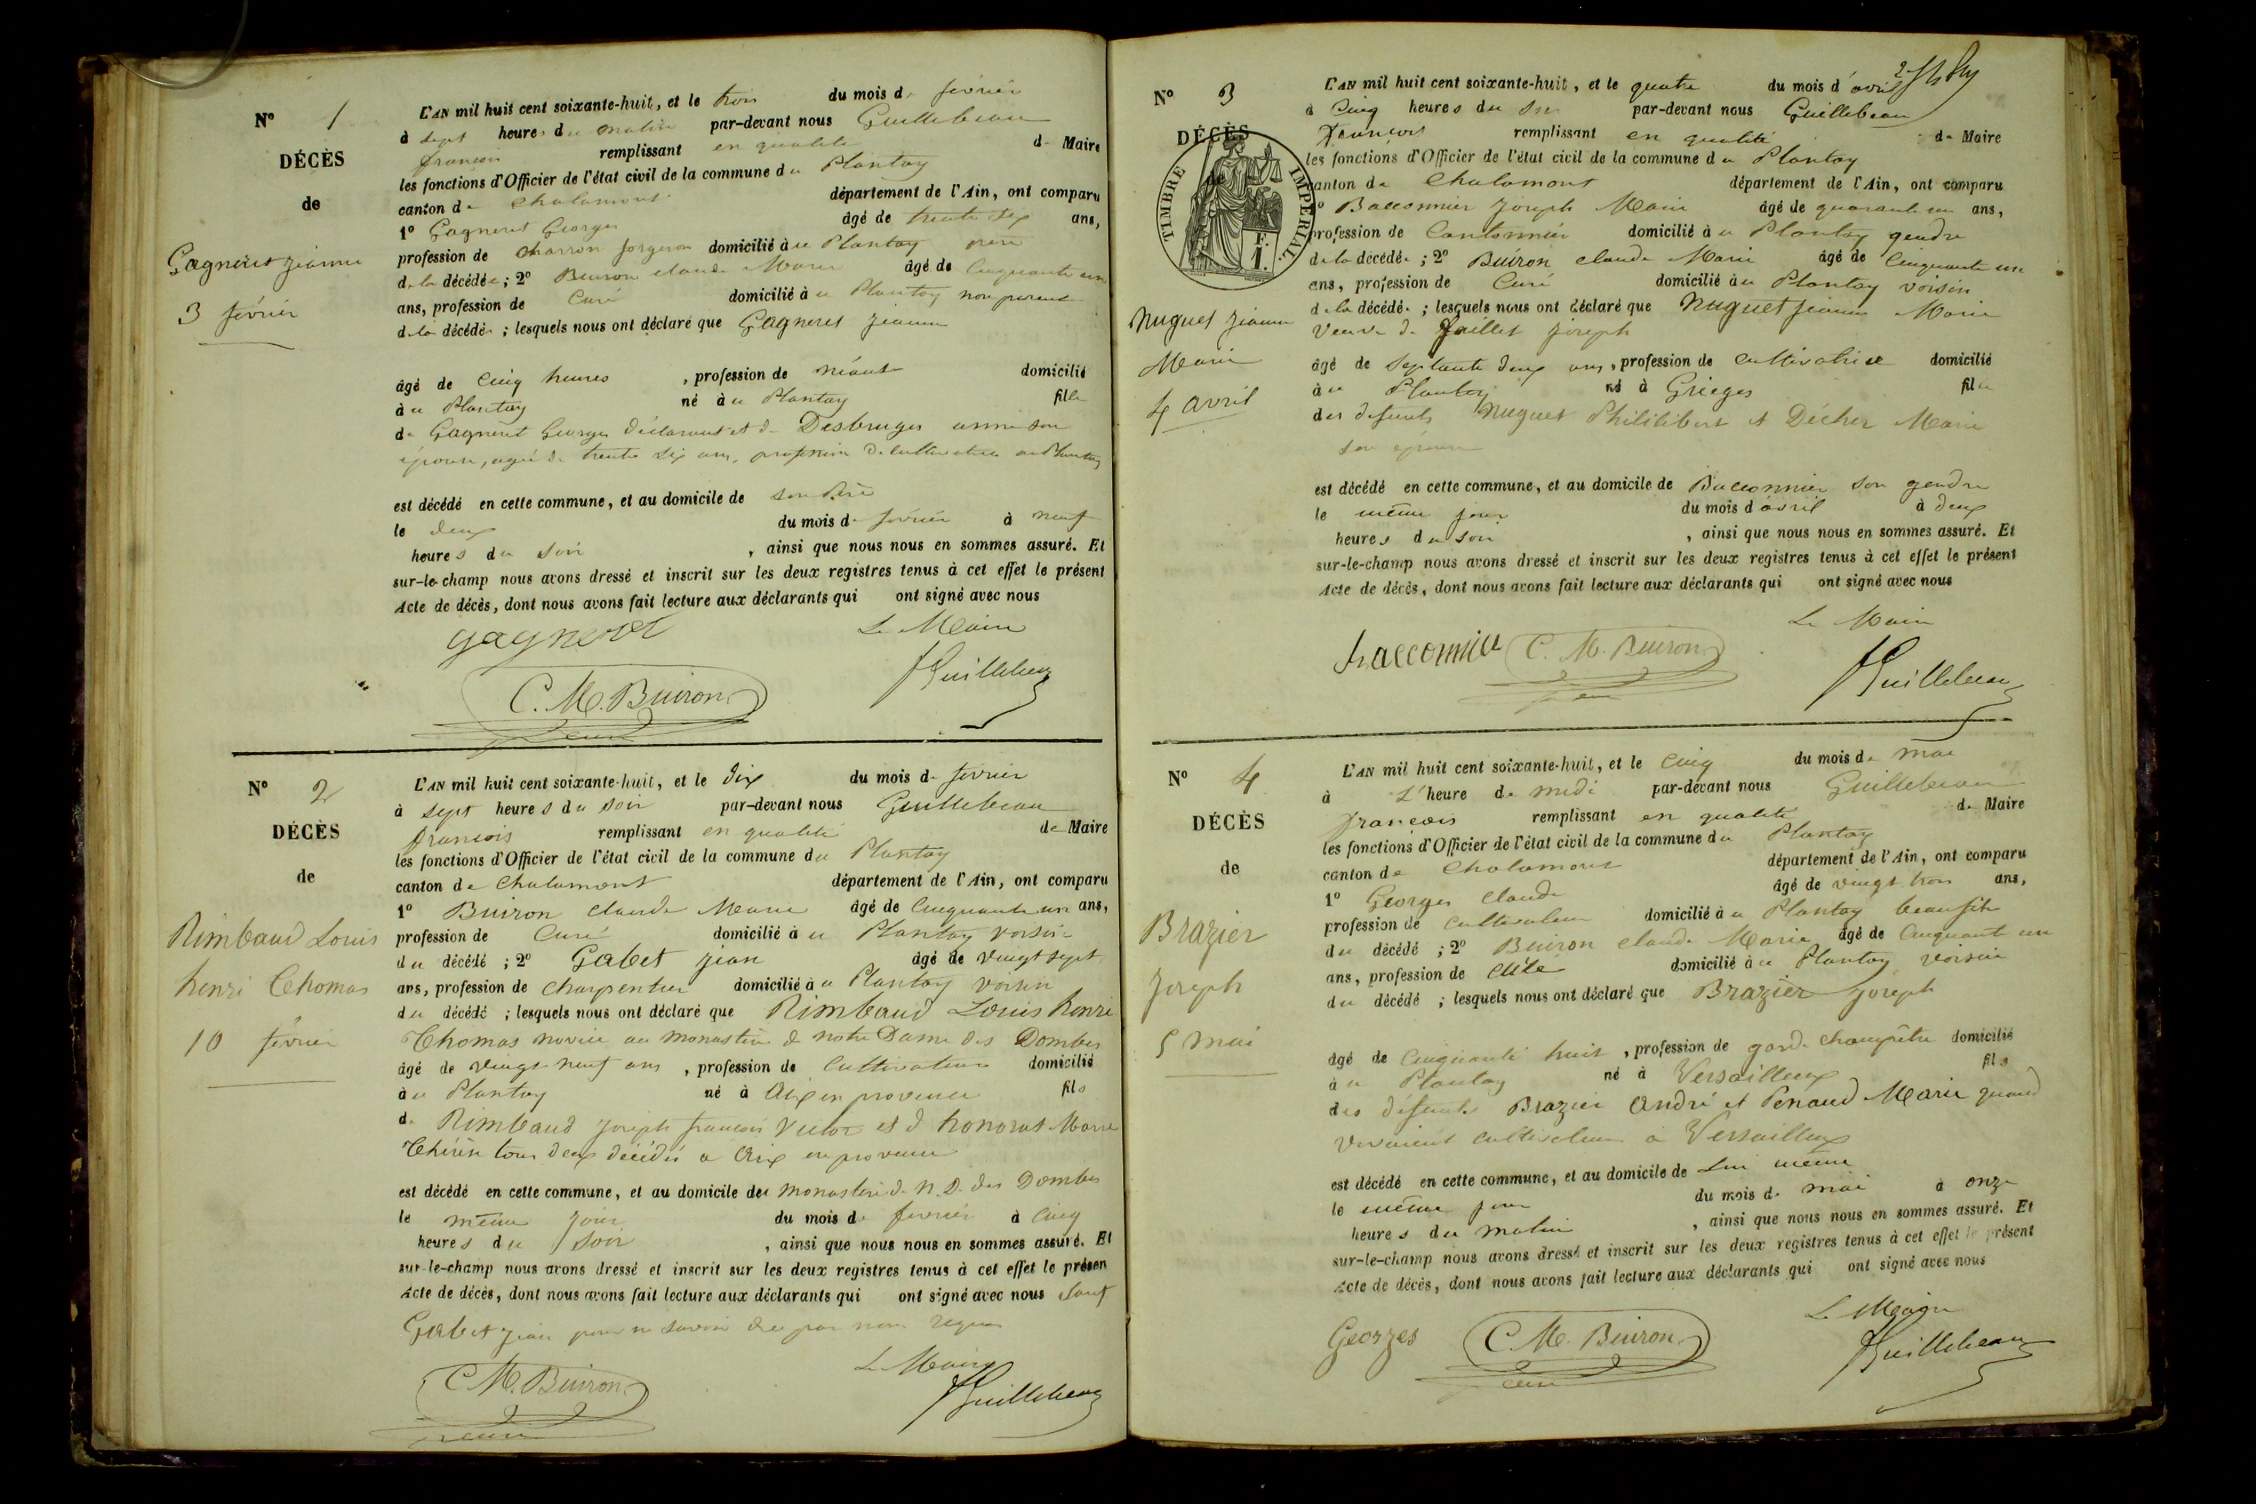 N° 1
DÉCÈS
de
Gagneret Jeanne
3 février
L'AN mil huit cent soixante-huit, et le trois du mois de février
à sept heures du matin par-devant nous Guillebeau
francois remplissant en qualité de Maire
les fonctions d'Officier de l'état civil de la commune du Plantay
canton de Chalamont département de l'Ain, ont comparu
1° Gagneret Georges âgé de trente six ans,
profession de charron forgeron domicilié à u Plantay père
de la décédée ; 2° Buiron claude Marie âgé de cinquante un
ans, profession de Curé domicilié à u Plantay non parent
de la décédée ; lesquels nous ont déclaré que Gagneret Jeanne
âgé de cinq heures , profession de néant domicilié
à u Plantay né à u Plantay fille
de Gagneret Georges déclarant et de Desbruges anne son
épouse, agée de trente six ans, profession de cultivatrice au Plantay
est décédé en cette commune, et au domicile de son Père
le deux du mois de février à neuf
heures du soir , ainsi que nous nous en sommes assuré. Et
sur-le-champ nous avons dressé et inscrit sur les deux registres tenus à cet effet le présent
Acte de décès, dont nous avons fait lecture aux déclarants qui ont signé avec nous
gagneret Le Maire
C. M. Buiron fGuillebeau
curé
N° 2
DÉCÈS
de
Rimbaud Louis
henri Thomas
10 février
L'AN mil huit cent soixante-huit, et le dix du mois de février
à sept heures du soir par-devant nous Guillebeau
francois remplissant en qualité de Maire
les fonctions d'Officier de l'état civil de la commune du Plantay
canton de Chalamont département de l'Ain, ont comparu
1° Buiron claude Marie âgé de cinquante un ans,
profession de Curé domicilié à u Plantay voisin
du décédé ; 2° Gabet jean âgé de vingt sept
ans, profession de charpentier domicilié à u Plantay voisin
du décédé ; lesquels nous ont déclaré que Rimbaud Louis henri
Thomas novice au monastère de notre Dame des Dombes
âgé de vingt neuf ans , profession de cultivateur domicilié
à u Plantay né à Aix en provence fils
de Rimbaud joseph francois Victor et d honorat Marie
Thérèse tous deux décédés a Aix en provence
est décédé en cette commune, et au domicile de monastère de N. D. des Dombes
le même jour du mois de février à cinq
heures du soir , ainsi que nous nous en sommes assuré. Et
sur-le-champ nous avons dressé et inscrit sur les deux registres tenus à cet effet le présen
Acte de décès, dont nous avons fait lecture aux déclarants qui ont signé avec nous sauf
Gabet jean pour ne savoir de par nous requis
Le Maire
C. M. Buiron fGuillebeau
curé
N° 3
DÉCÈS
de
TIMBRE IMPÉRIAL
Nuguet Jeanne
Marie
4 avril
L'AN mil huit cent soixante-huit, et le quatre du mois d'avril
à cinq heures du soir par-devant nous Guillebeau
francois remplissant en qualité de Maire
les fonctions d'Officier de l'état civil de la commune du Plantay
canton de Chalamont département de l'Ain, ont comparu
1° Bacconnier Joseph Marie âgé de quarante un ans,
profession de Cantonnier domicilié à u Plantay gendre
de la décédée ; 2° Buiron claude Marie âgé de cinquante un
ans, profession de Curé domicilié à u Plantay voisin
de la décédée ; lesquels nous ont déclaré que Nuguet jeanne Marie
veuve de Jaillet joseph
âgé de septante deux ans , profession de cultivatrice domicilié
à u Plantay né à Grièges fille
des defunts Nuguet Philibert et Décher Marie
son épouse
est décédé en cette commune, et au domicile de Bacconnier son gendre
le même jour du mois d'avril à deux
heures du soir , ainsi que nous nous en sommes assuré. Et
sur-le-champ nous avons dressé et inscrit sur les deux registres tenus à cet effet le présent
Acte de décès, dont nous avons fait lecture aux déclarants qui ont signé avec nous
Le Maire
C. M. Buiron fGuillebeau
curé
N° 4
DÉCÈS
de
Brazier
Joseph
5 mai
L'AN mil huit cent soixante-huit, et le cinq du mois de mai
à L'heure de midi par-devant nous Guillebeau
francois remplissant en qualité de Maire
les fonctions d'Officier de l'état civil de la commune du Plantay
canton de Chalamont département de l'Ain, ont comparu
1° Georges claude âgé de vingt trois ans,
profession de cultivateur domicilié à u Plantay beau fils
du décédé ; 2° Buiron claude Marie âgé de cinquante un
ans, profession de curé domicilié à u Plantay voisin
du décédé ; lesquels nous ont déclaré que Brazier joseph
âgé de cinquante huit , profession de garde champêtre domicilié
à u Plantay né à Versailleux fils
des défunts Brazier André et Penaud Marie quand
vivaient cultivateurs a Versailleux
est décédé en cette commune, et au domicile de Lui même
le même jour du mois de mai à onze
heures du matin , ainsi que nous nous en sommes assuré. Et
sur-le-champ nous avons dressé et inscrit sur les deux registres tenus à cet effet le présent
Acte de décès, dont nous avons fait lecture aux déclarants qui ont signé avec nous
Le Maire
Georges C. M. Buiron fGuillebeau
curé